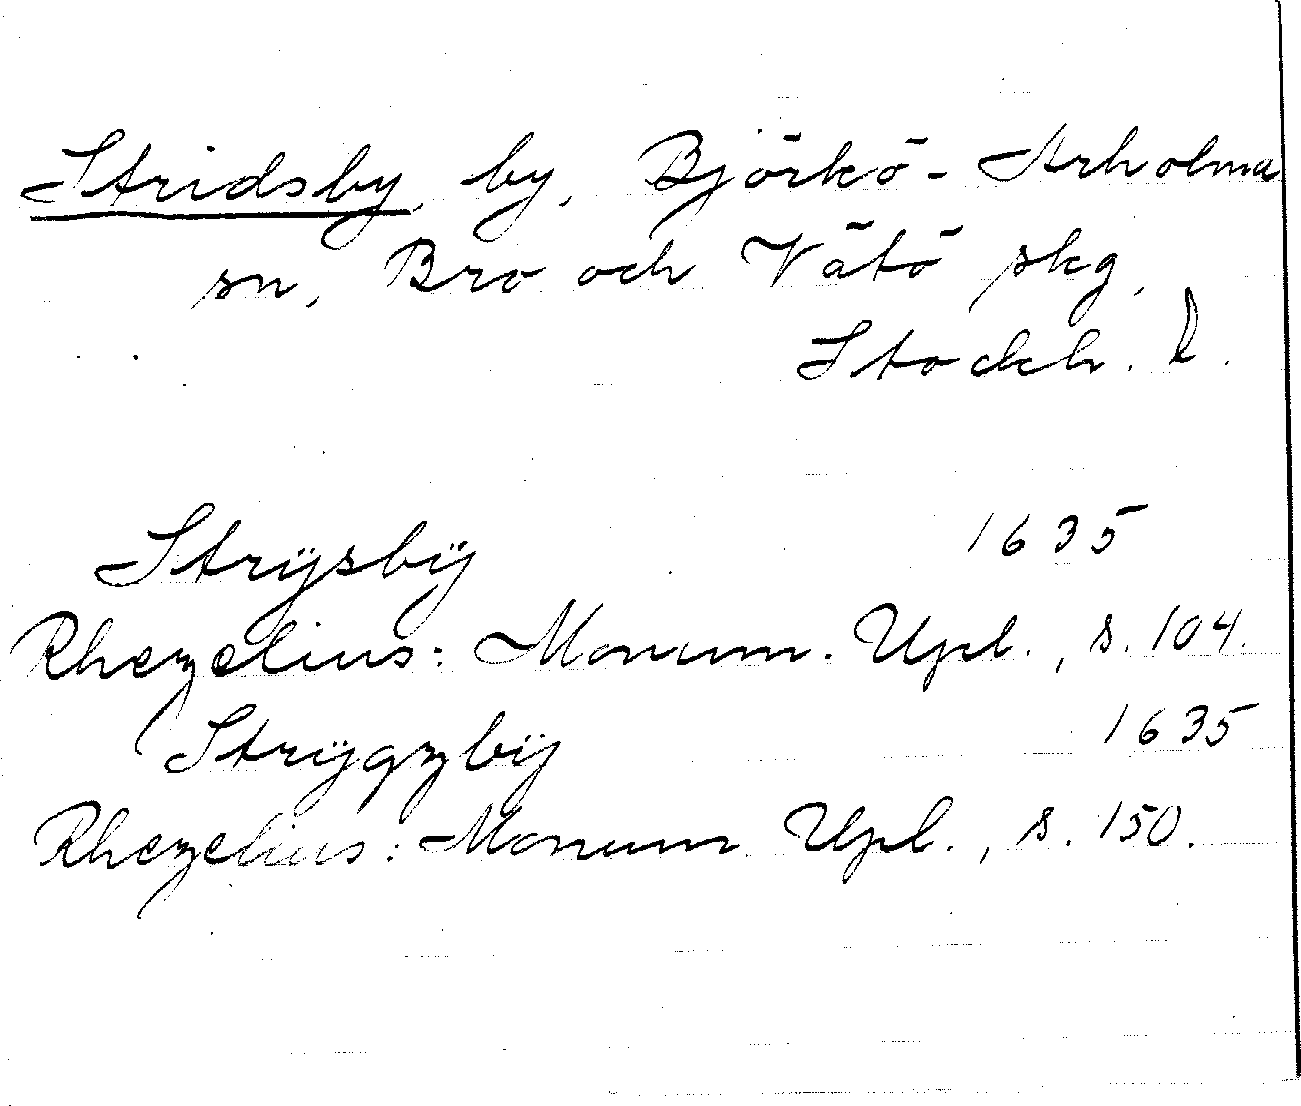 Stridsby, by, Björkö-Arholma
sn, Bro och Vätö skg,
Stockh. l.
Strÿsbÿ 1635
Rhezelius: Monum. Upl., s. 104.
Strÿgzbÿ 1635
Rhezelius: Monum Upl., s. 150.